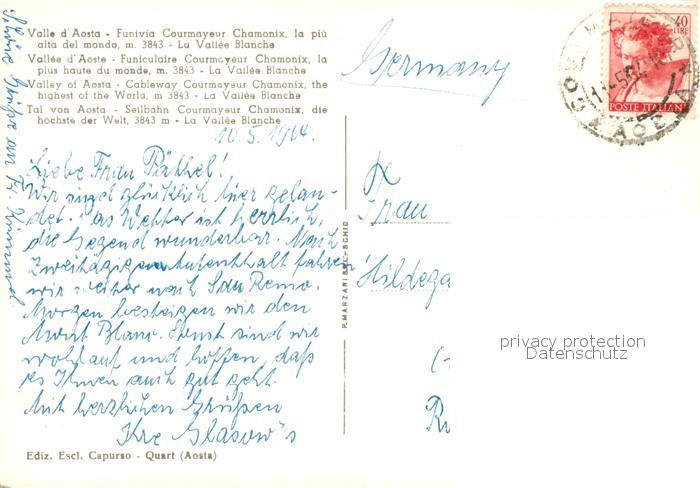 Valle d'Aosta - Funivia Courmayeur Chamonix, la più
alta del mondo, m. 3843 - La Vallée Blanche
Vallée d'Aoste - Funiculaire Courmayeur Chamonix, la
plus haute du monde, m. 3843 - La Vallée Blanche
Valley of Aosta - Cableway Courmayeur Chamonix, the
highest of the World, m 3843 - La Vallée Blanche
Tal von Aosta - Seilbahn Courmayeur Chamonix, die
höchste der Welt, 3843 m - La Vallée Blanche
10.5.1964.
Liebe Frau Päthel!
Wir sind glücklich hier gelan-
det. Das Wetter ist herrlich,
die Gegend wunderbar. Nach
zweitägigem Aufenthalt fahren
wir weiter nach San Remo.
Morgen besteigen wir den
Mont Blanc. Sonst sind wir
wohlauf und hoffen, daß
es Ihnen auch gut geht.
Mit herzlichen Grüßen
Ihre Glasow's
Schöne Grüße an Fr.
Ediz. Escl. Capurso - Quart (Aosta)
P. MARZARI S.R.L. - SCHIO
Germany
40
LIRE
POSTE ITALIANE
AOSTA
Frau
Hildega
privacy protection
Datenschutz